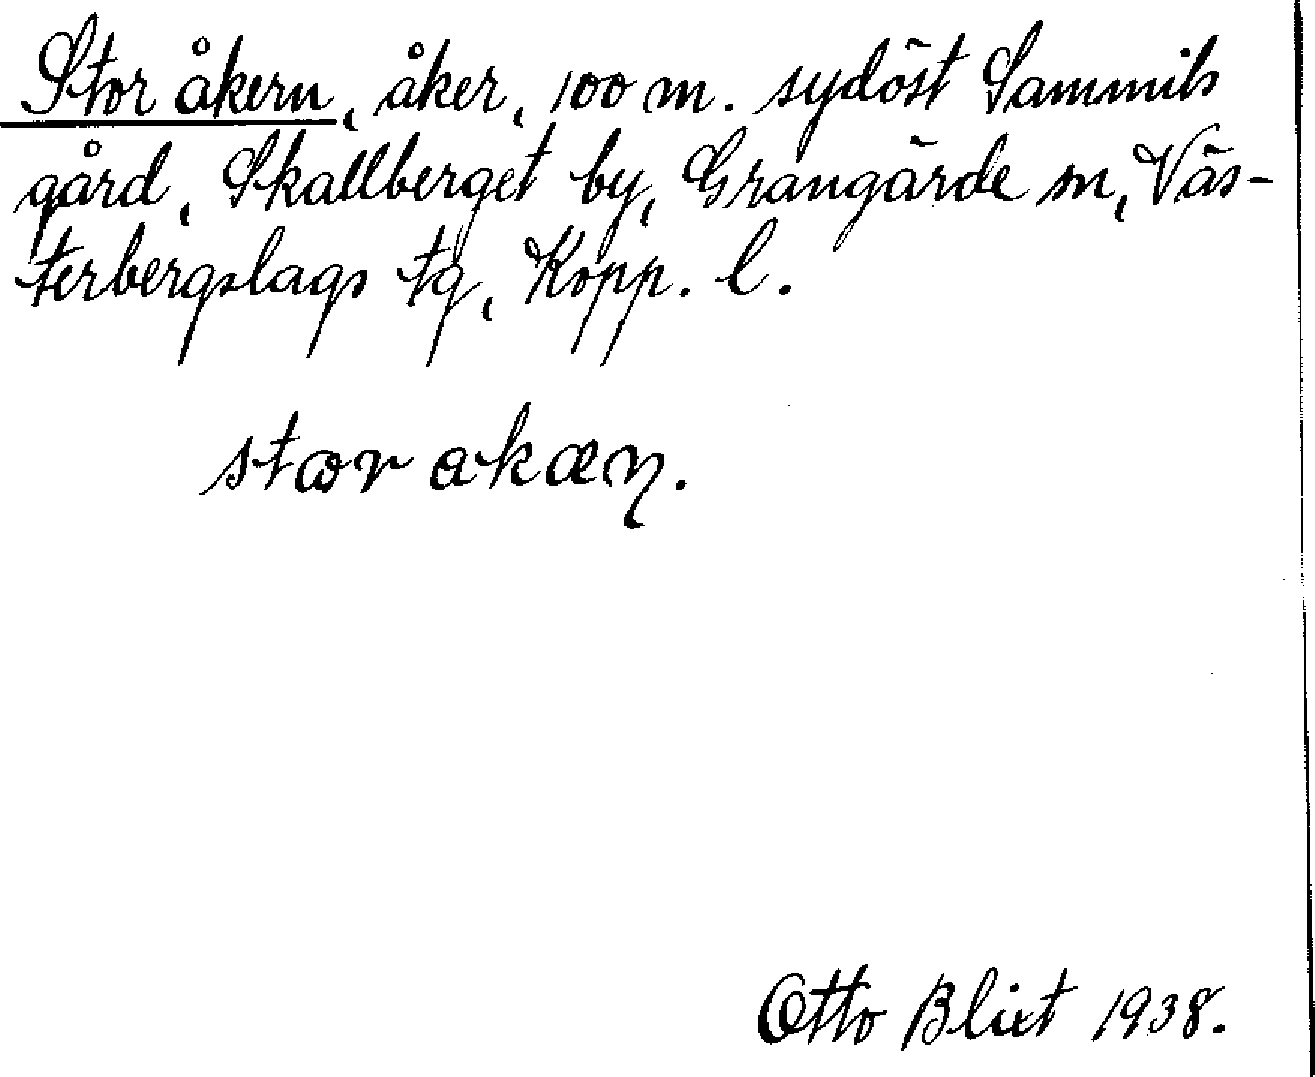 Stor åkern, åker, 100 m. sydöst Sammils
gård, Skallberget by, Grangärde sn, Väs-
terbergslags tg, Kopp. l.
stωr akæŋ.
Otto Blixt 1938.